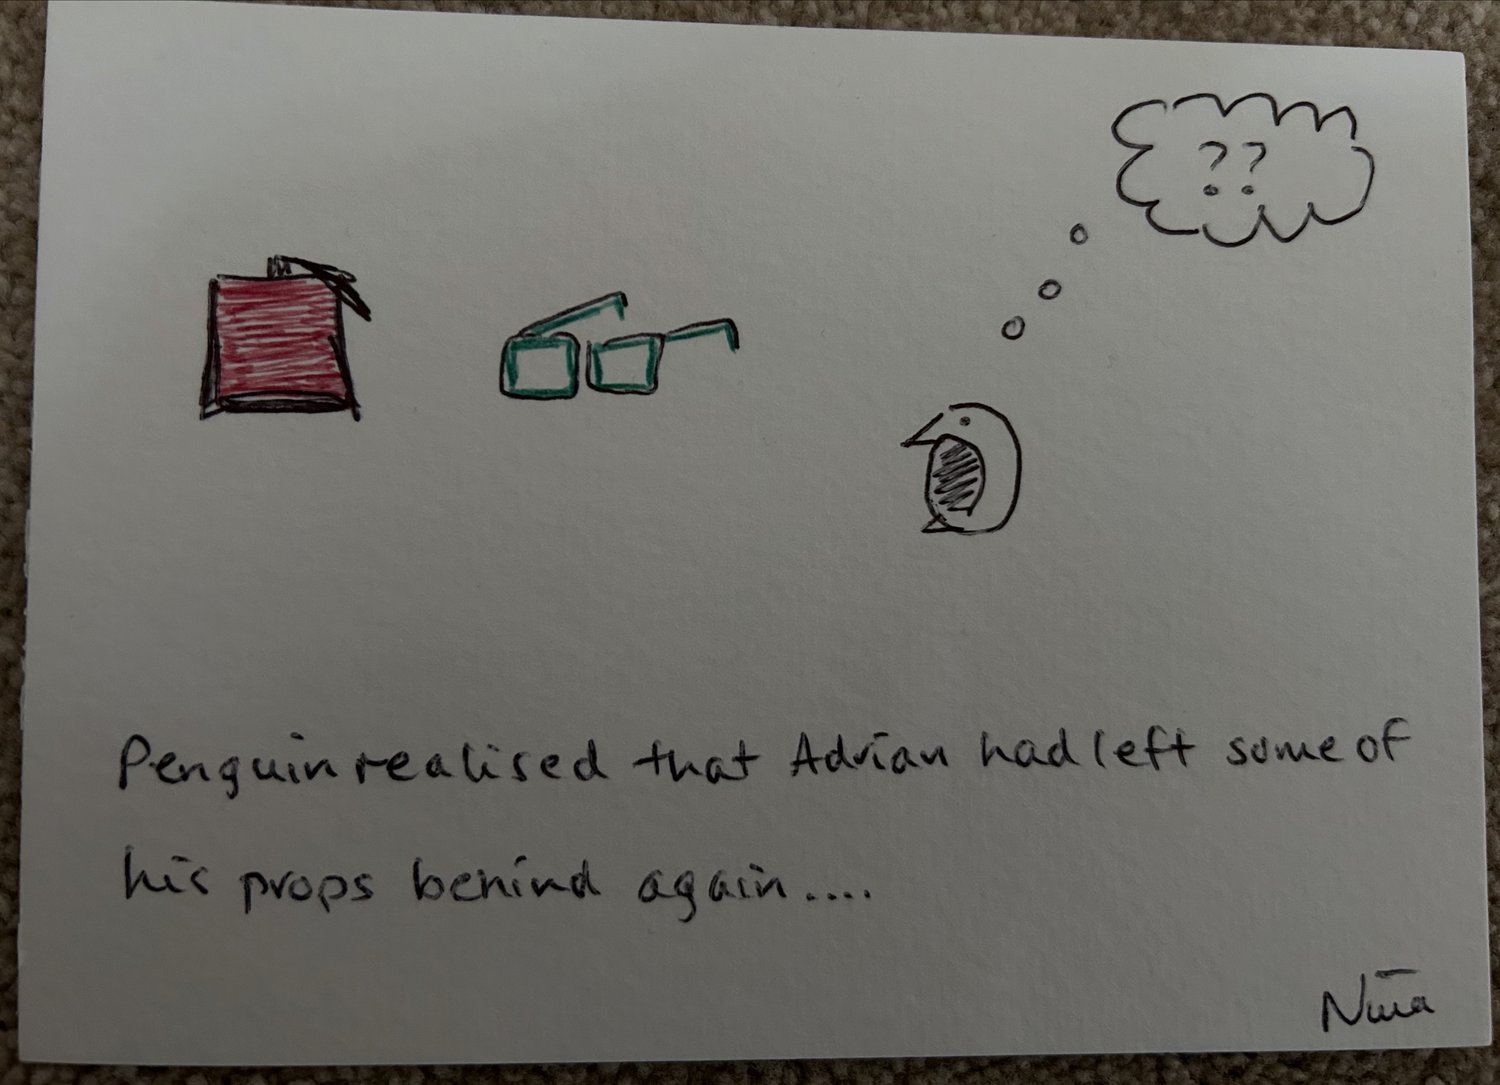 ??
Penguin realised that Adrian had left some of
his props behind again....
Nina